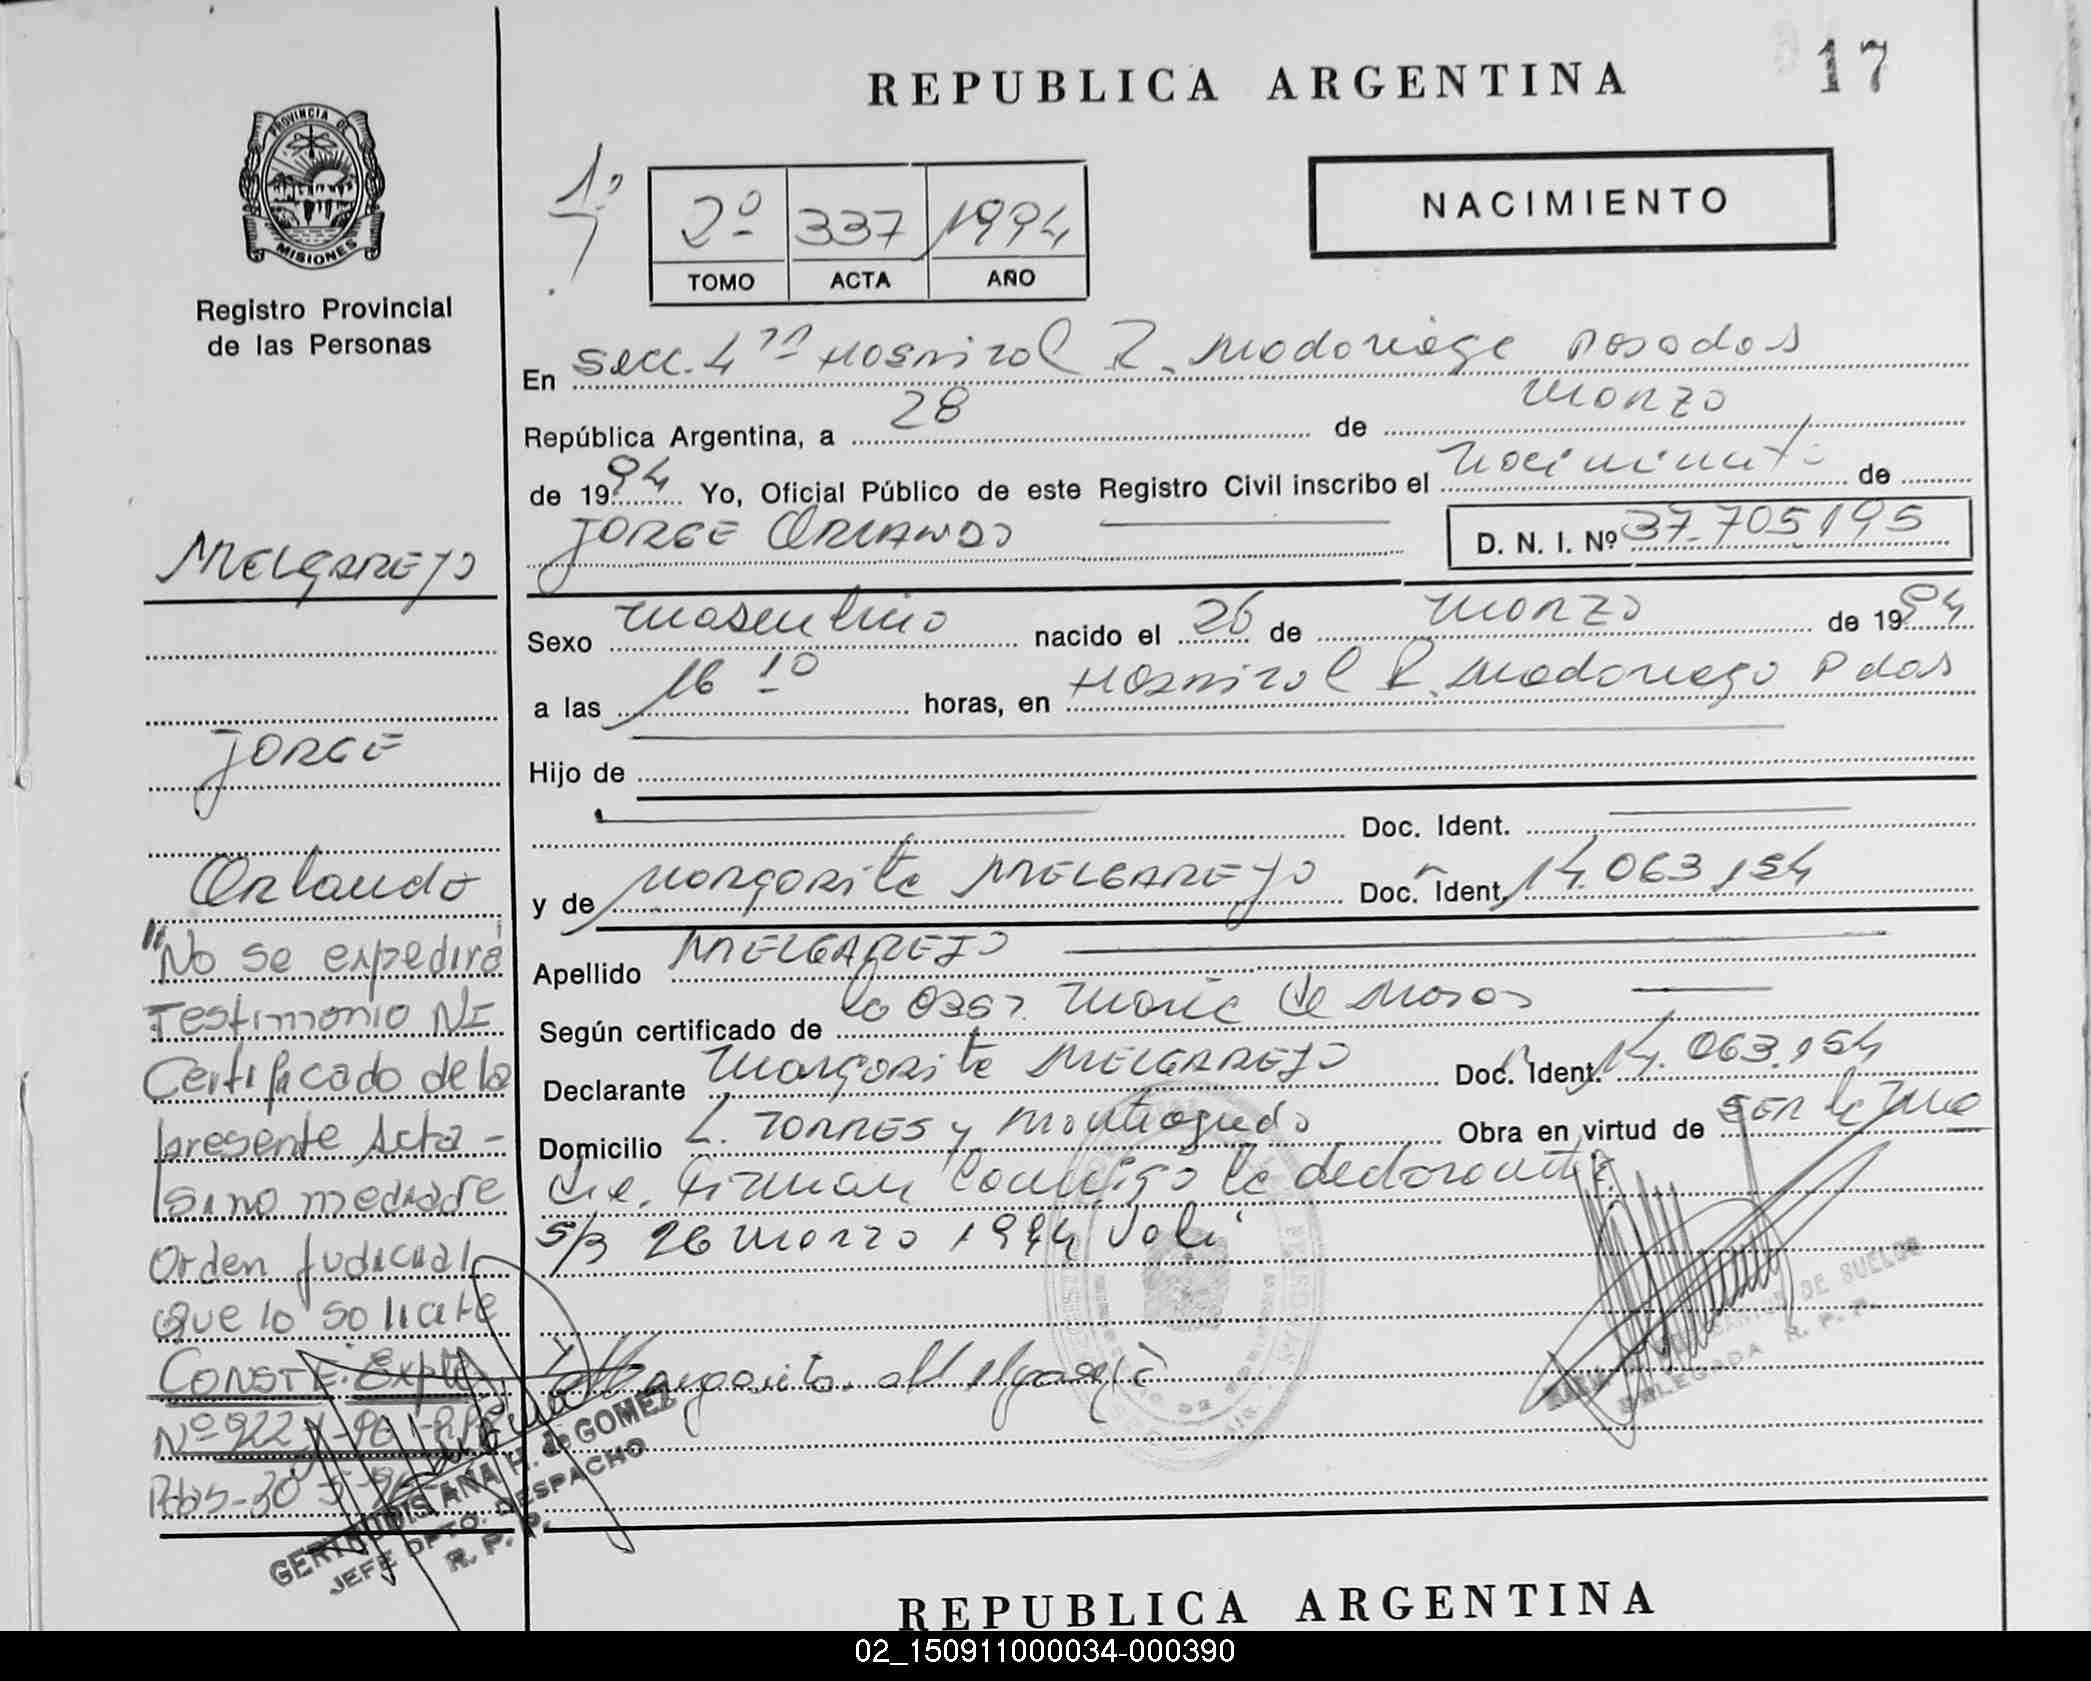 REPUBLICA ARGENTINA
17
PROVINCIA DE
MISIONES
Registro Provincial
de las Personas
1º
2º 337 1994
TOMO ACTA AÑO
NACIMIENTO
En Secc. 4ta Hospital R. Madariaga Posadas
República Argentina, a 28 de Marzo
de 1994 Yo, Oficial Público de este Registro Civil inscribo el nacimiento de
JORGE ORLANDO D. N. I. Nº 37.705.195
Sexo masculino nacido el 26 de Marzo de 1994
a las 16 10 horas, en Hospital R. Madariaga Pdas
Hijo de
Doc. Ident.
y de Margarita MELGAREJO Doc. Ident. 14.063.154
Apellido MELGAREJO
Según certificado de la Obst. Maria de
Declarante Margarita MELGAREJO Doc. Ident. 14.063.154
Domicilio L. TORRES y Monteagudo Obra en virtud de SER la
Firman conmigo la declarante
S/B 26 Marzo 1994 Vale
Margarita Melgarejo
DE SUELDO
DELEGADA R. P. P.
MELGAREJO
JORGE
Orlando
"No se expedirá
Testimonio NI
Certificado de la
presente Acta -
sino mediare
Orden Judicial
que lo solicite
CONSTE: Expte
Nº 922
Pdas - 30 - 5
GERTRUDIS ANA H. de GOMEZ
JEFE DPTO. DESPACHO
R. P. P.
REPUBLICA ARGENTINA
02_150911000034-000390